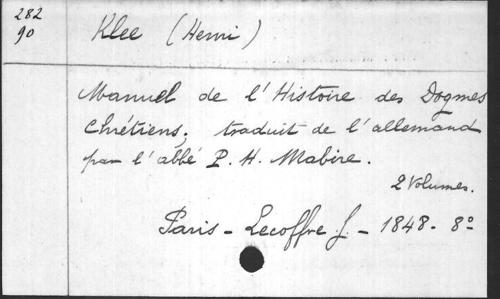 282
90
Klee (Henri)
Manuel de l'Histoire des Dogmes
Chrétiens; traduit de l'allemand
par l'abbé P. H. Mabire.
2 Volumes.
Paris - Lecoffre J. - 1848 - 8º